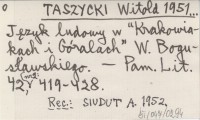 TASZYCKI Witold 1951.
Język ludowy w "Krakowia-
kach i Góralach" W. Bogu-
sławskiego. — Pam. Lit.
42, 419-428.
Rec.: SIUDUT A. 1952,